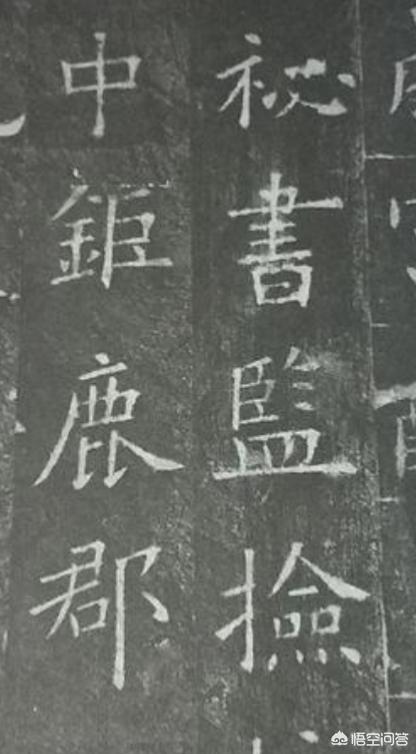 祕書監撿
中鉅鹿郡
悟空问答